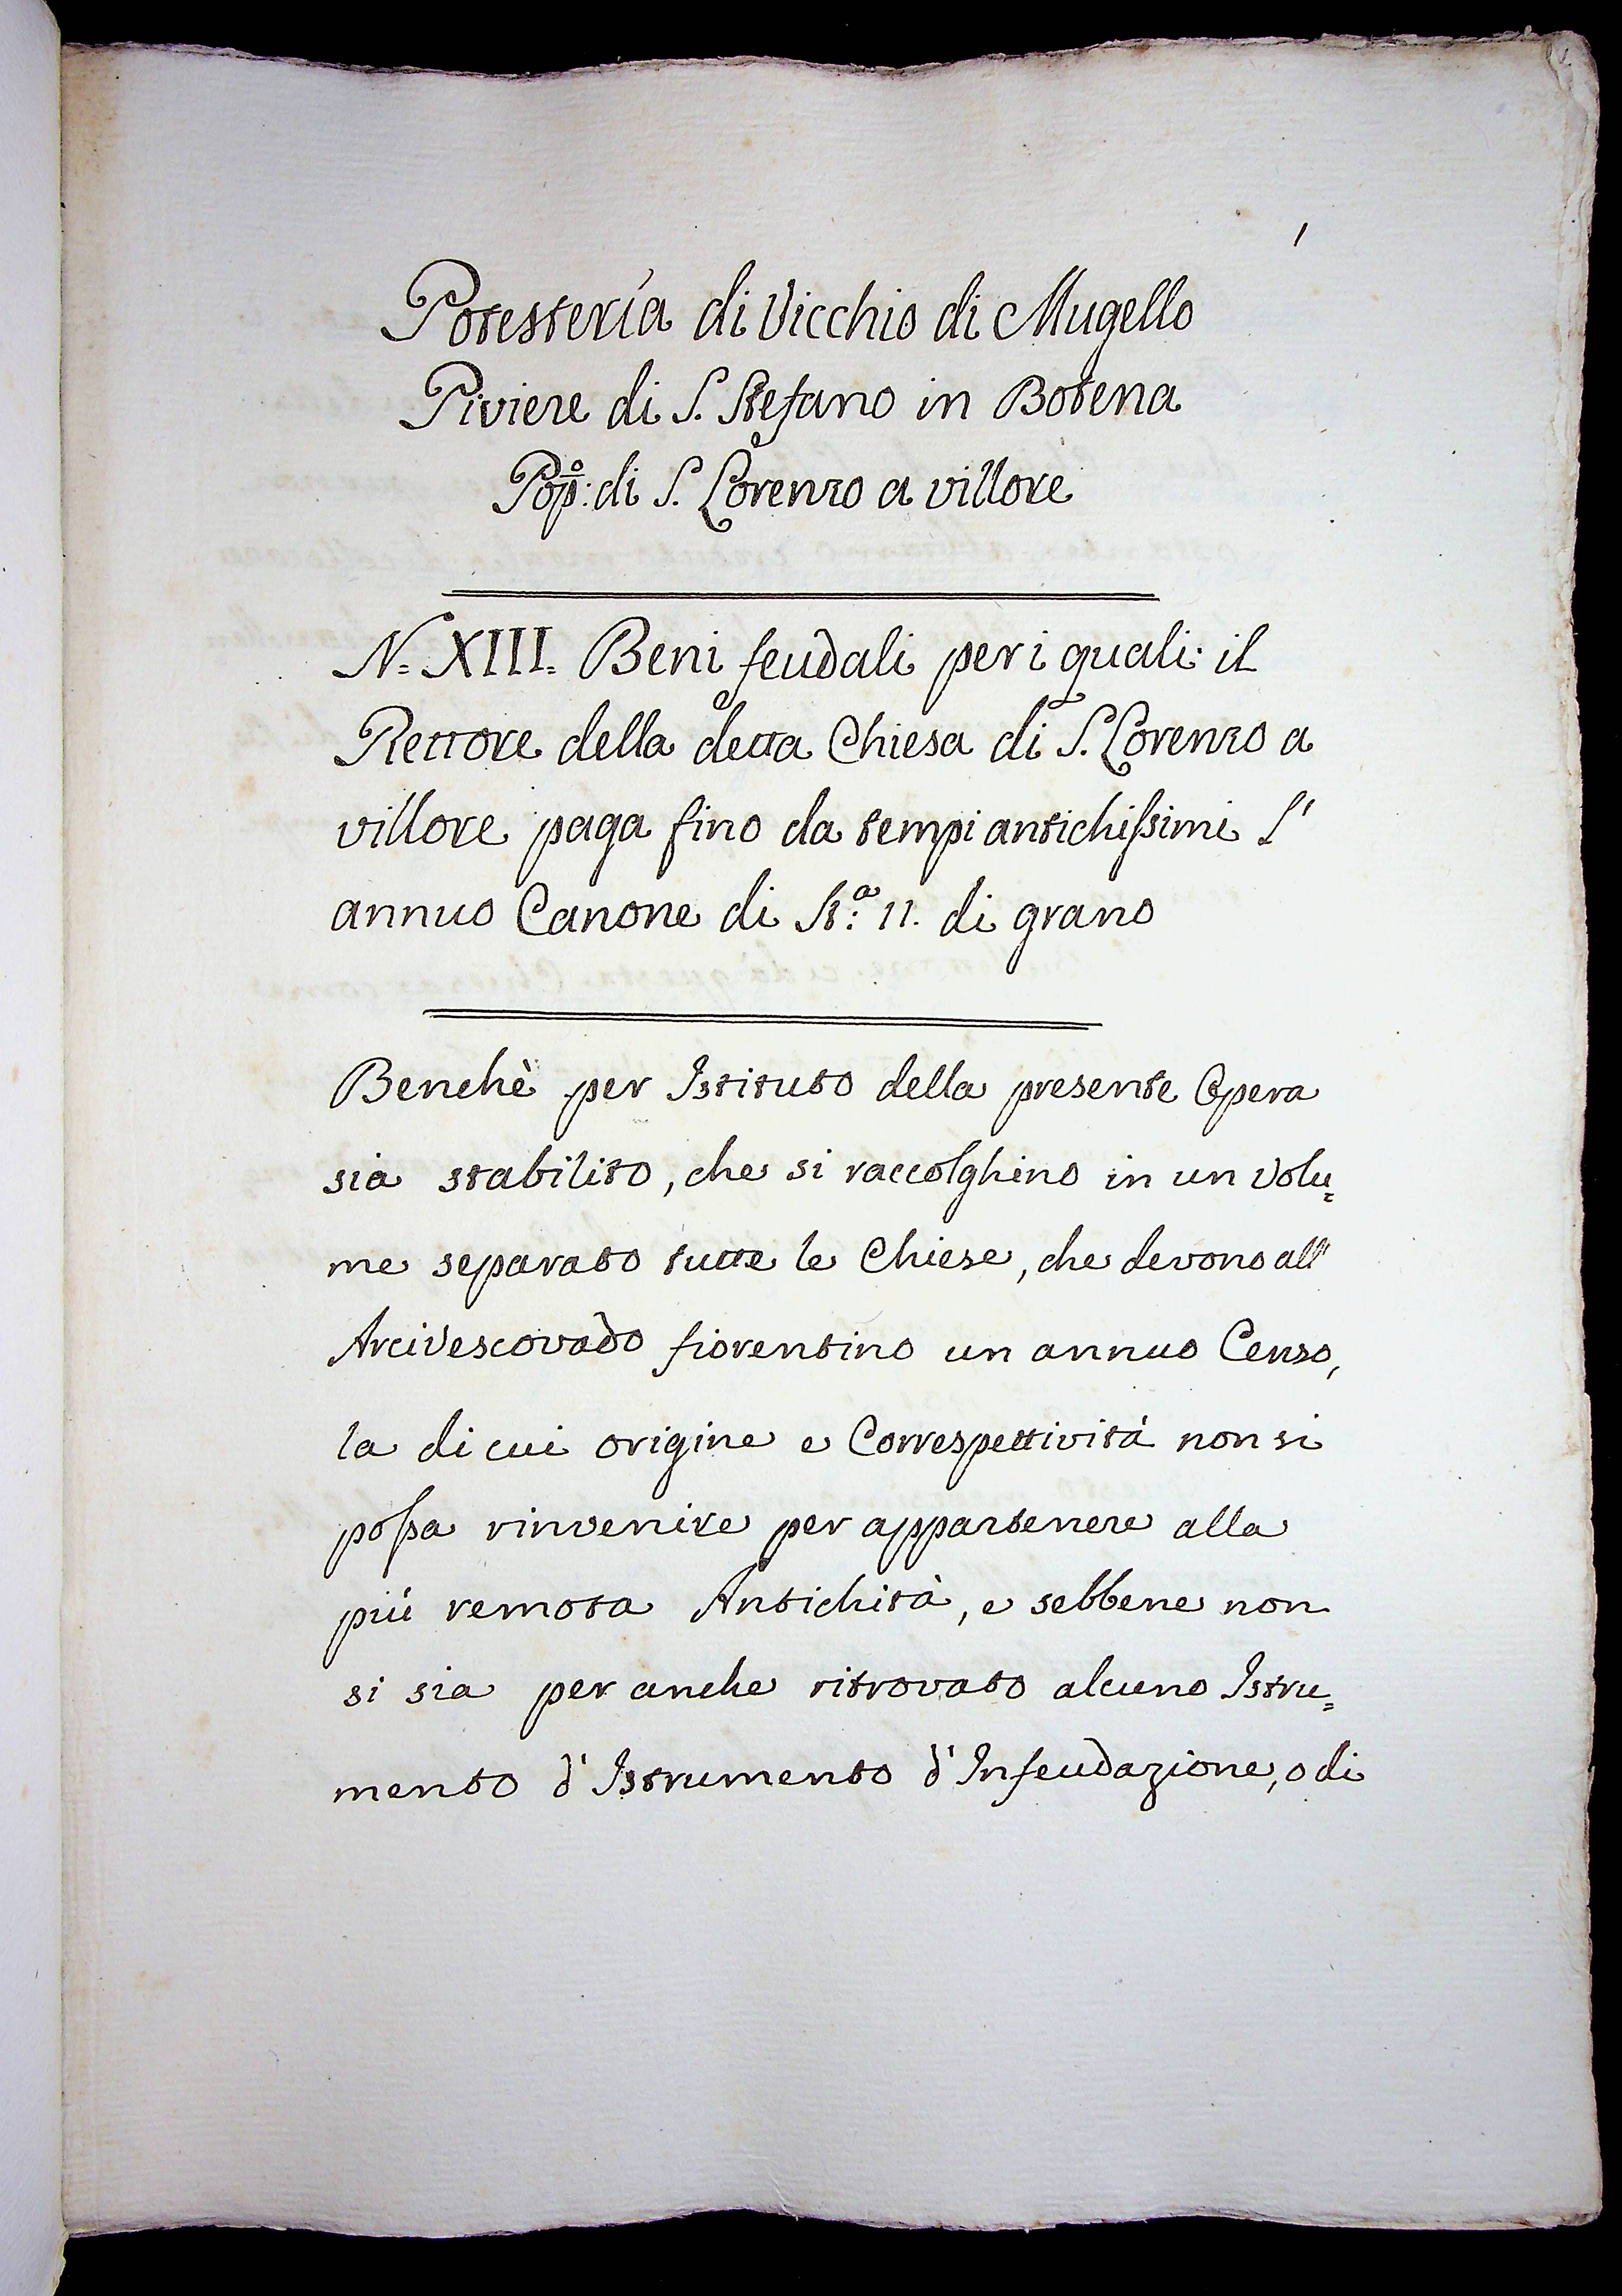 1
Potesterìa di Vicchio di Mugello
Piviere di S. Stefano in Botena
Pop:º di S. Lorenzo a villore
N. XIII. Beni feudali per i quali il
Rettore della detta Chiesa di S. Lorenzo a
villore paga fino da tempi antichissimi l'
annuo Canone di St:ª 11. di grano
Benchè per Istituto della presente Opera
sia stabilito, che si raccolghino in un Volu=
me separato tutte le Chiese, che devono all'
Arcivescovado fiorentino un annuo Censo,
la di cui origine e Correspettività non si
possa rinvenire per appartenere alla
più remota Antichità, e sebbene non
si sia per anche ritrovato alcuno Istru=
mento d'Istrumento d'Infeudazione, o di